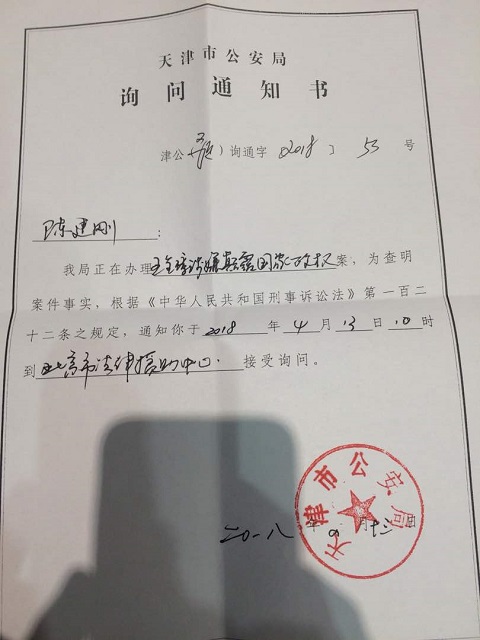 天津市公安局
询问通知书
津公 ）询通字〔2018〕53号
陈建刚：
我局正在办理王全璋涉嫌颠覆国家政权案，为查明
案件事实，根据《中华人民共和国刑事诉讼法》第一百二
十二条之规定，通知你于2018年4月13日10时
到北京市法律援助中心.接受询问。
天津市公安局
二〇一八 月十二日